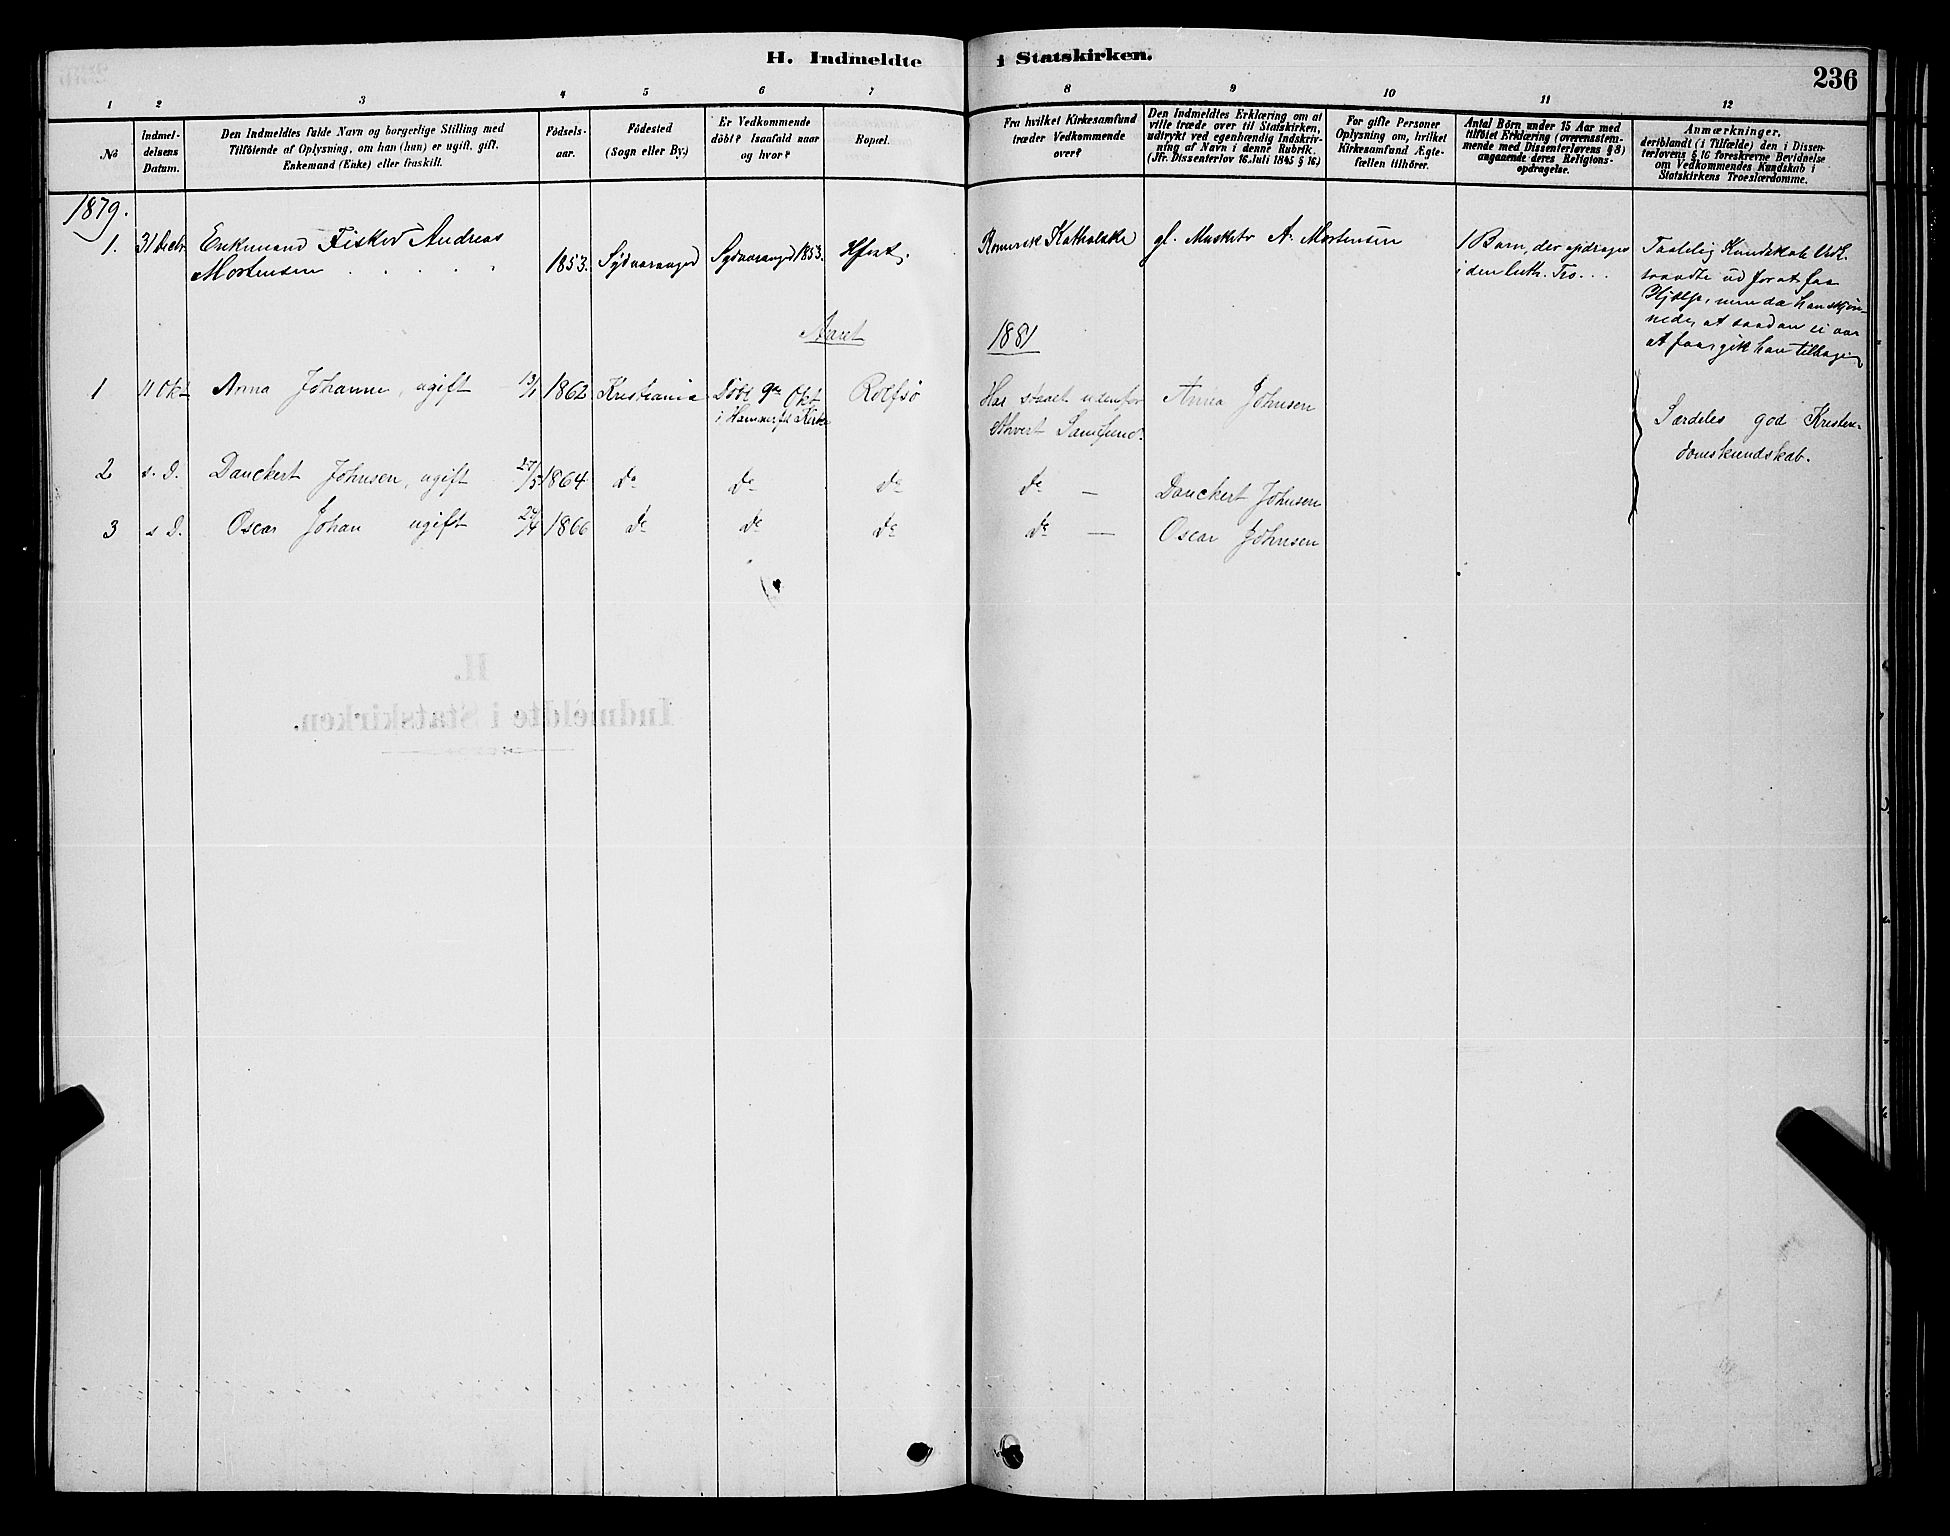 H. Indmeldte i Statskirken.
236
1 2 3 4 5 6 7 8 9 10 11 12
No
Indmel-
delsens
Datum.
Den Indmeldtes fulde Navn og borgerlige Stilling med
Tilföiende af Oplysning, om han (hun) er ugift, gift,
Enkemand (Enke) eller fraskilt.
Födsels-
aar.
Födested
(Sogn eller By.)
Er Vedkommende
döbt? Isaafald naar
og hvor?
Bopæl.
Fra hvilket Kirkesamfund
træder Vedkommende
over?
Den Indmeldtes Erklæring om at
ville træde over til Statskirken,
udtrykt ved egenhændig Indskriv-
ning af Navn i denne Rubrik.
(Jfr. Dissenterlov 16. Juli 1845 § 16.)
For gifte Personer
Oplysning om, hvilket
Kirkesamfund Ægte-
fællen tilhörer.
Antal Börn under 15 Aar med
tilföiet Erklæring (overensstem-
mende med Dissenterlovens § 8)
angaaende deres Religions-
opdragelse.
Anmærkninger,
deriblandt (i Tilfælde) den i Dissen-
terlovens § 16 foreskrevne Bevidnelse
om Vedkommendes Kundskab i
Statskirkens Troeslærdomme.
1879.
1. 31 Decbr
Enkemand Fisker Andreas
Mortensen
1853. Sydvaranger Sydvaranger 1853. Hfest.
Romersk Katholske
gl. A. Mortensen
1 Barn, der opdrages
i den luth. Tro.
Taalelig Kundskab.
traadte ud for at faa
Hjælp, men da han skjön-
nede, at saadan ei var
at faa, gik han tilbage
Aaret 1881
1 11 Okt Anna Johanne, ugift 13/1 1862 Kristiania Döbt 9de Okt Rolfsö
i Hammerfst Kirke
Har staaet udenfor
ethvert Samfund.
Anna Johnsen
Særdeles god Kristen-
domskundskab.
2 s. D. Danckert Johnsen, ugift 27/5 1864 do do do do — Danckert Johnsen
3 s D. Oscar Johan ugift 24/4 1866 do do do do — Oscar Johnsen
H.
Indmeldte i Statskirken.